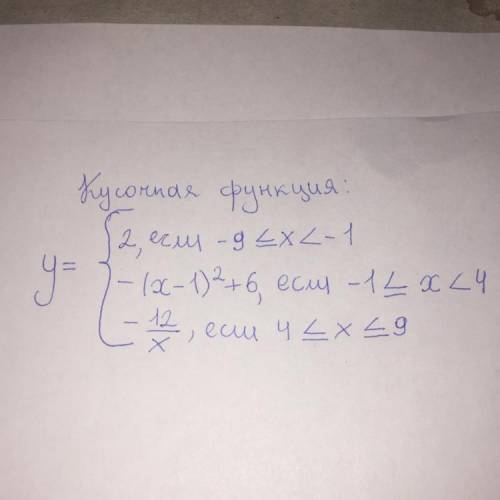 Кусочная функция:
2, если -9 ≤ x < -1
y= { -(x-1)²+6, если -1 ≤ x < 4
-12/x, если 4 ≤ x ≤ 9